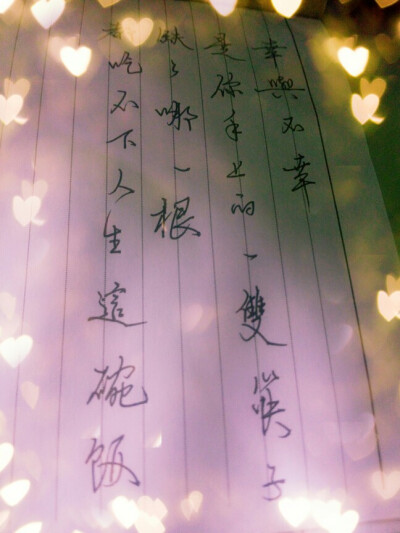 幸與不幸
是你手上的一雙筷子
缺了哪一根
都吃不下人生這碗飯